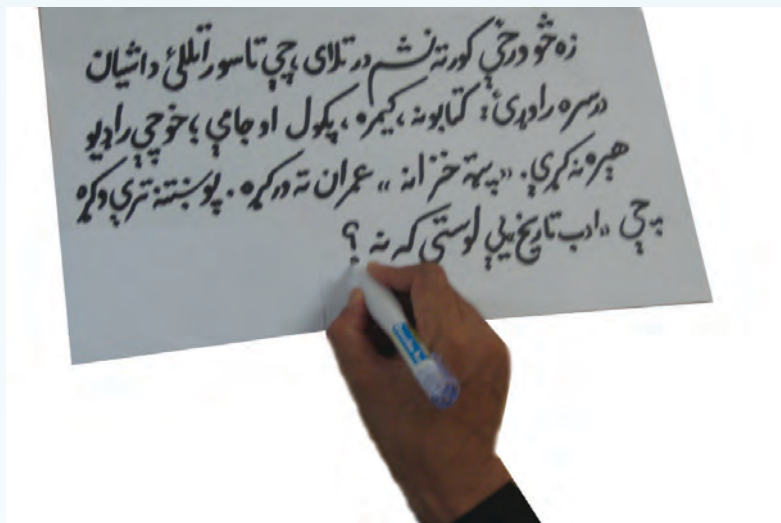 زه خو ورځې کور ته نشم درتلای، چې تاسو راتللئ دا شیان
درسره راوړئ: کتابونه، کیمره، پکول او جامې؛ خو چې راډیو
هېره نه کړې. «پټه خزانه» عمران ته ورکړه. پوښتنه ترې وکړه
چې «ادب تاریخ یې لوستی که نه؟